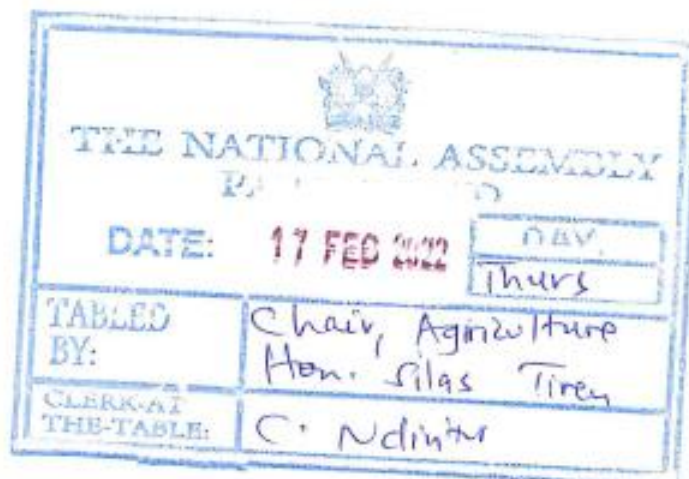 THE NATIONAL ASSEMBLY
DATE: 17 FEB 2022
DAY.
Thurs
TABLED
BY:
Chair, Agriculture
Hon. Silas Tiren
CLERK-AT
THE-TABLE:
C.